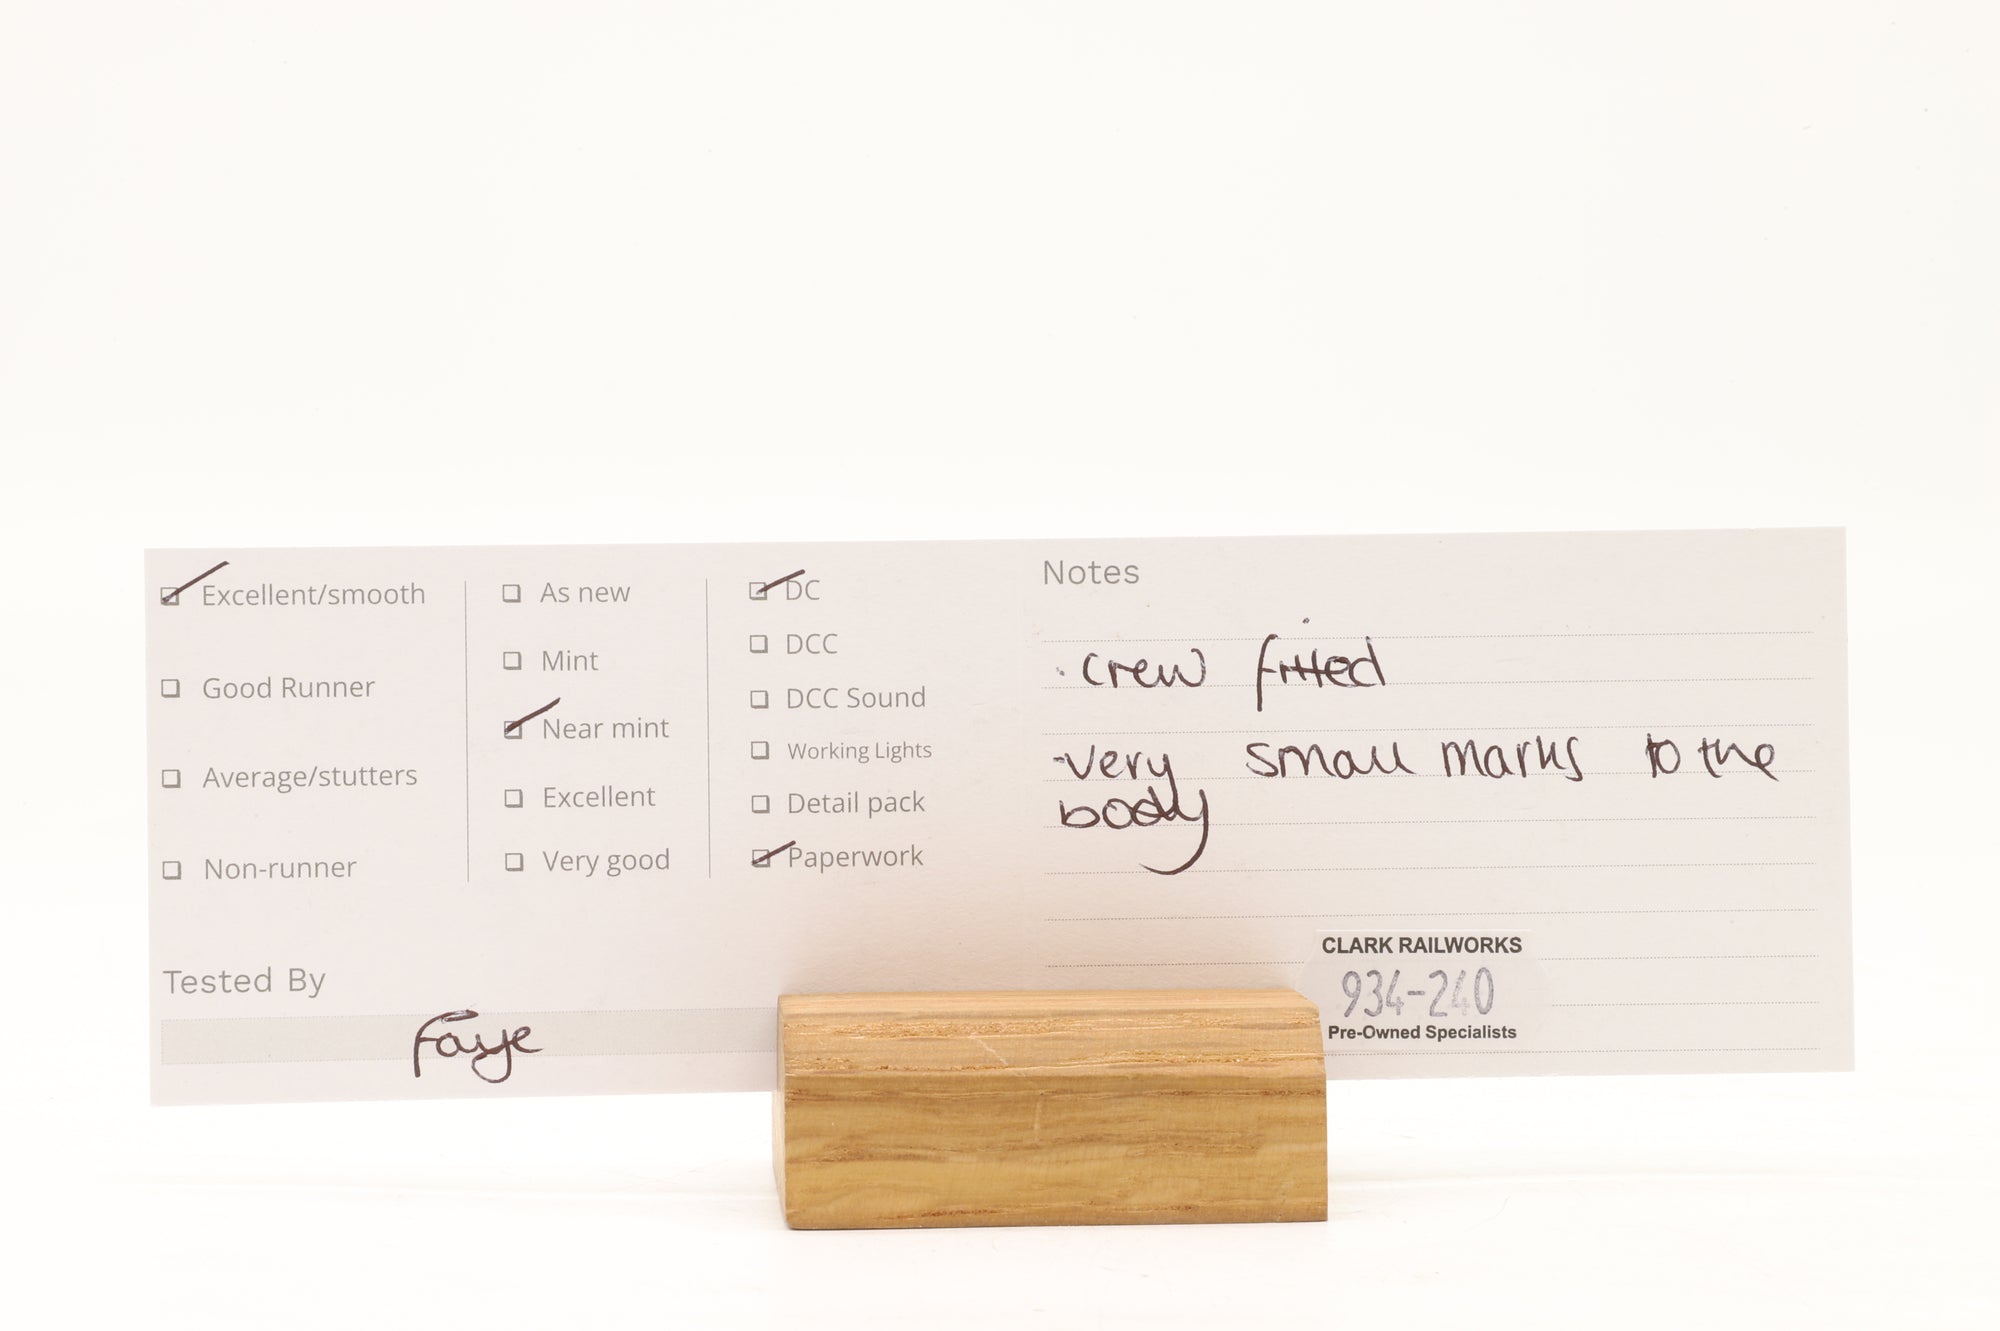 Excellent/smooth
Good Runner
Average/stutters
Non-runner
As new
Mint
Near mint
Excellent
Very good
DC
DCC
DCC Sound
Working Lights
Detail pack
Paperwork
Tested By
Faye
Notes
· crew fitted
-very small marks to the
body
CLARK RAILWORKS
934-240
Pre-Owned Specialists